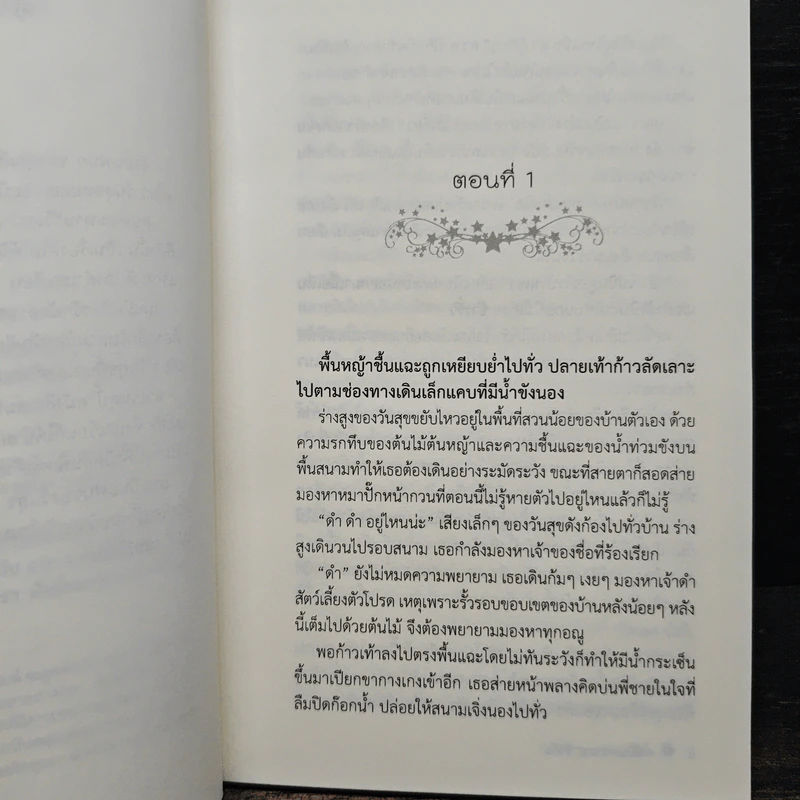 ตอนที่ 1
พื้นหญ้าชื้นแฉะถูกเหยียบย่ำไปทั่ว ปลายเท้าก้าวลัดเลาะ
ไปตามช่องทางเดินเล็กแคบที่มีน้ำขังนอง
ร่างสูงของวันสุขขยับไหวอยู่ในพื้นที่สวนน้อยของบ้านตัวเอง ด้วย
ความรกทึบของต้นไม้ต้นหญ้าและความชื้นแฉะของน้ำท่วมขังบน
พื้นสนามทำให้เธอต้องเดินอย่างระมัดระวัง ขณะที่สายตาก็สอดส่าย
มองหาหมาปั๊กหน้ากวนที่ตอนนี้ไม่รู้หายตัวไปอยู่ไหนแล้วก็ไม่รู้
“ดำ ดำ อยู่ไหนน่ะ” เสียงเล็กๆ ของวันสุขดังก้องไปทั่วบ้าน ร่าง
สูงเดินวนไปรอบสนาม เธอกำลังมองหาเจ้าของชื่อที่ร้องเรียก
“ดำ” ยังไม่หมดความพยายาม เธอเดินก้มๆ เงยๆ มองหาเจ้าดำ
สัตว์เลี้ยงตัวโปรด เหตุเพราะรั้วรอบขอบเขตของบ้านหลังน้อยๆ หลัง
นี้เต็มไปด้วยต้นไม้ จึงต้องพยายามมองหาทุกอณู
พอก้าวเท้าลงไปตรงพื้นแฉะโดยไม่ทันระวังก็ทำให้มีน้ำกระเซ็น
ขึ้นมาเปียกขากางเกงเข้าอีก เธอส่ายหน้าพลางคิดบ่นพี่ชายในใจที่
ลืมปิดก๊อกน้ำ ปล่อยให้สนามเจิ่งนองไปทั่ว